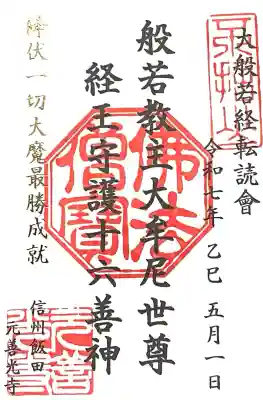 大般若経転読會
令和七年 乙巳 五月一日
般若教主大牟尼世尊
経王守護十六善神
降伏一切大魔最勝成就
信州飯田
元善光寺
佛法
僧寶
元善